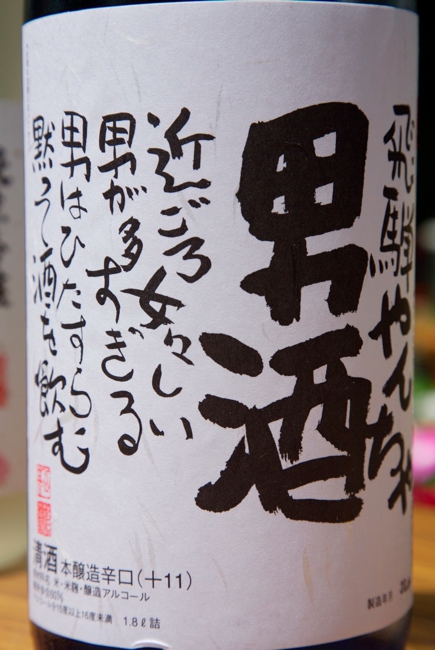 飛騨やんちゃ
男酒
近ごろ女々しい
男が多すぎる
男はひたすら
黙って酒を飲む
清酒 本醸造辛口(+11)
米・米麹・醸造アルコール
16度未満 1.8ℓ詰
製造年月